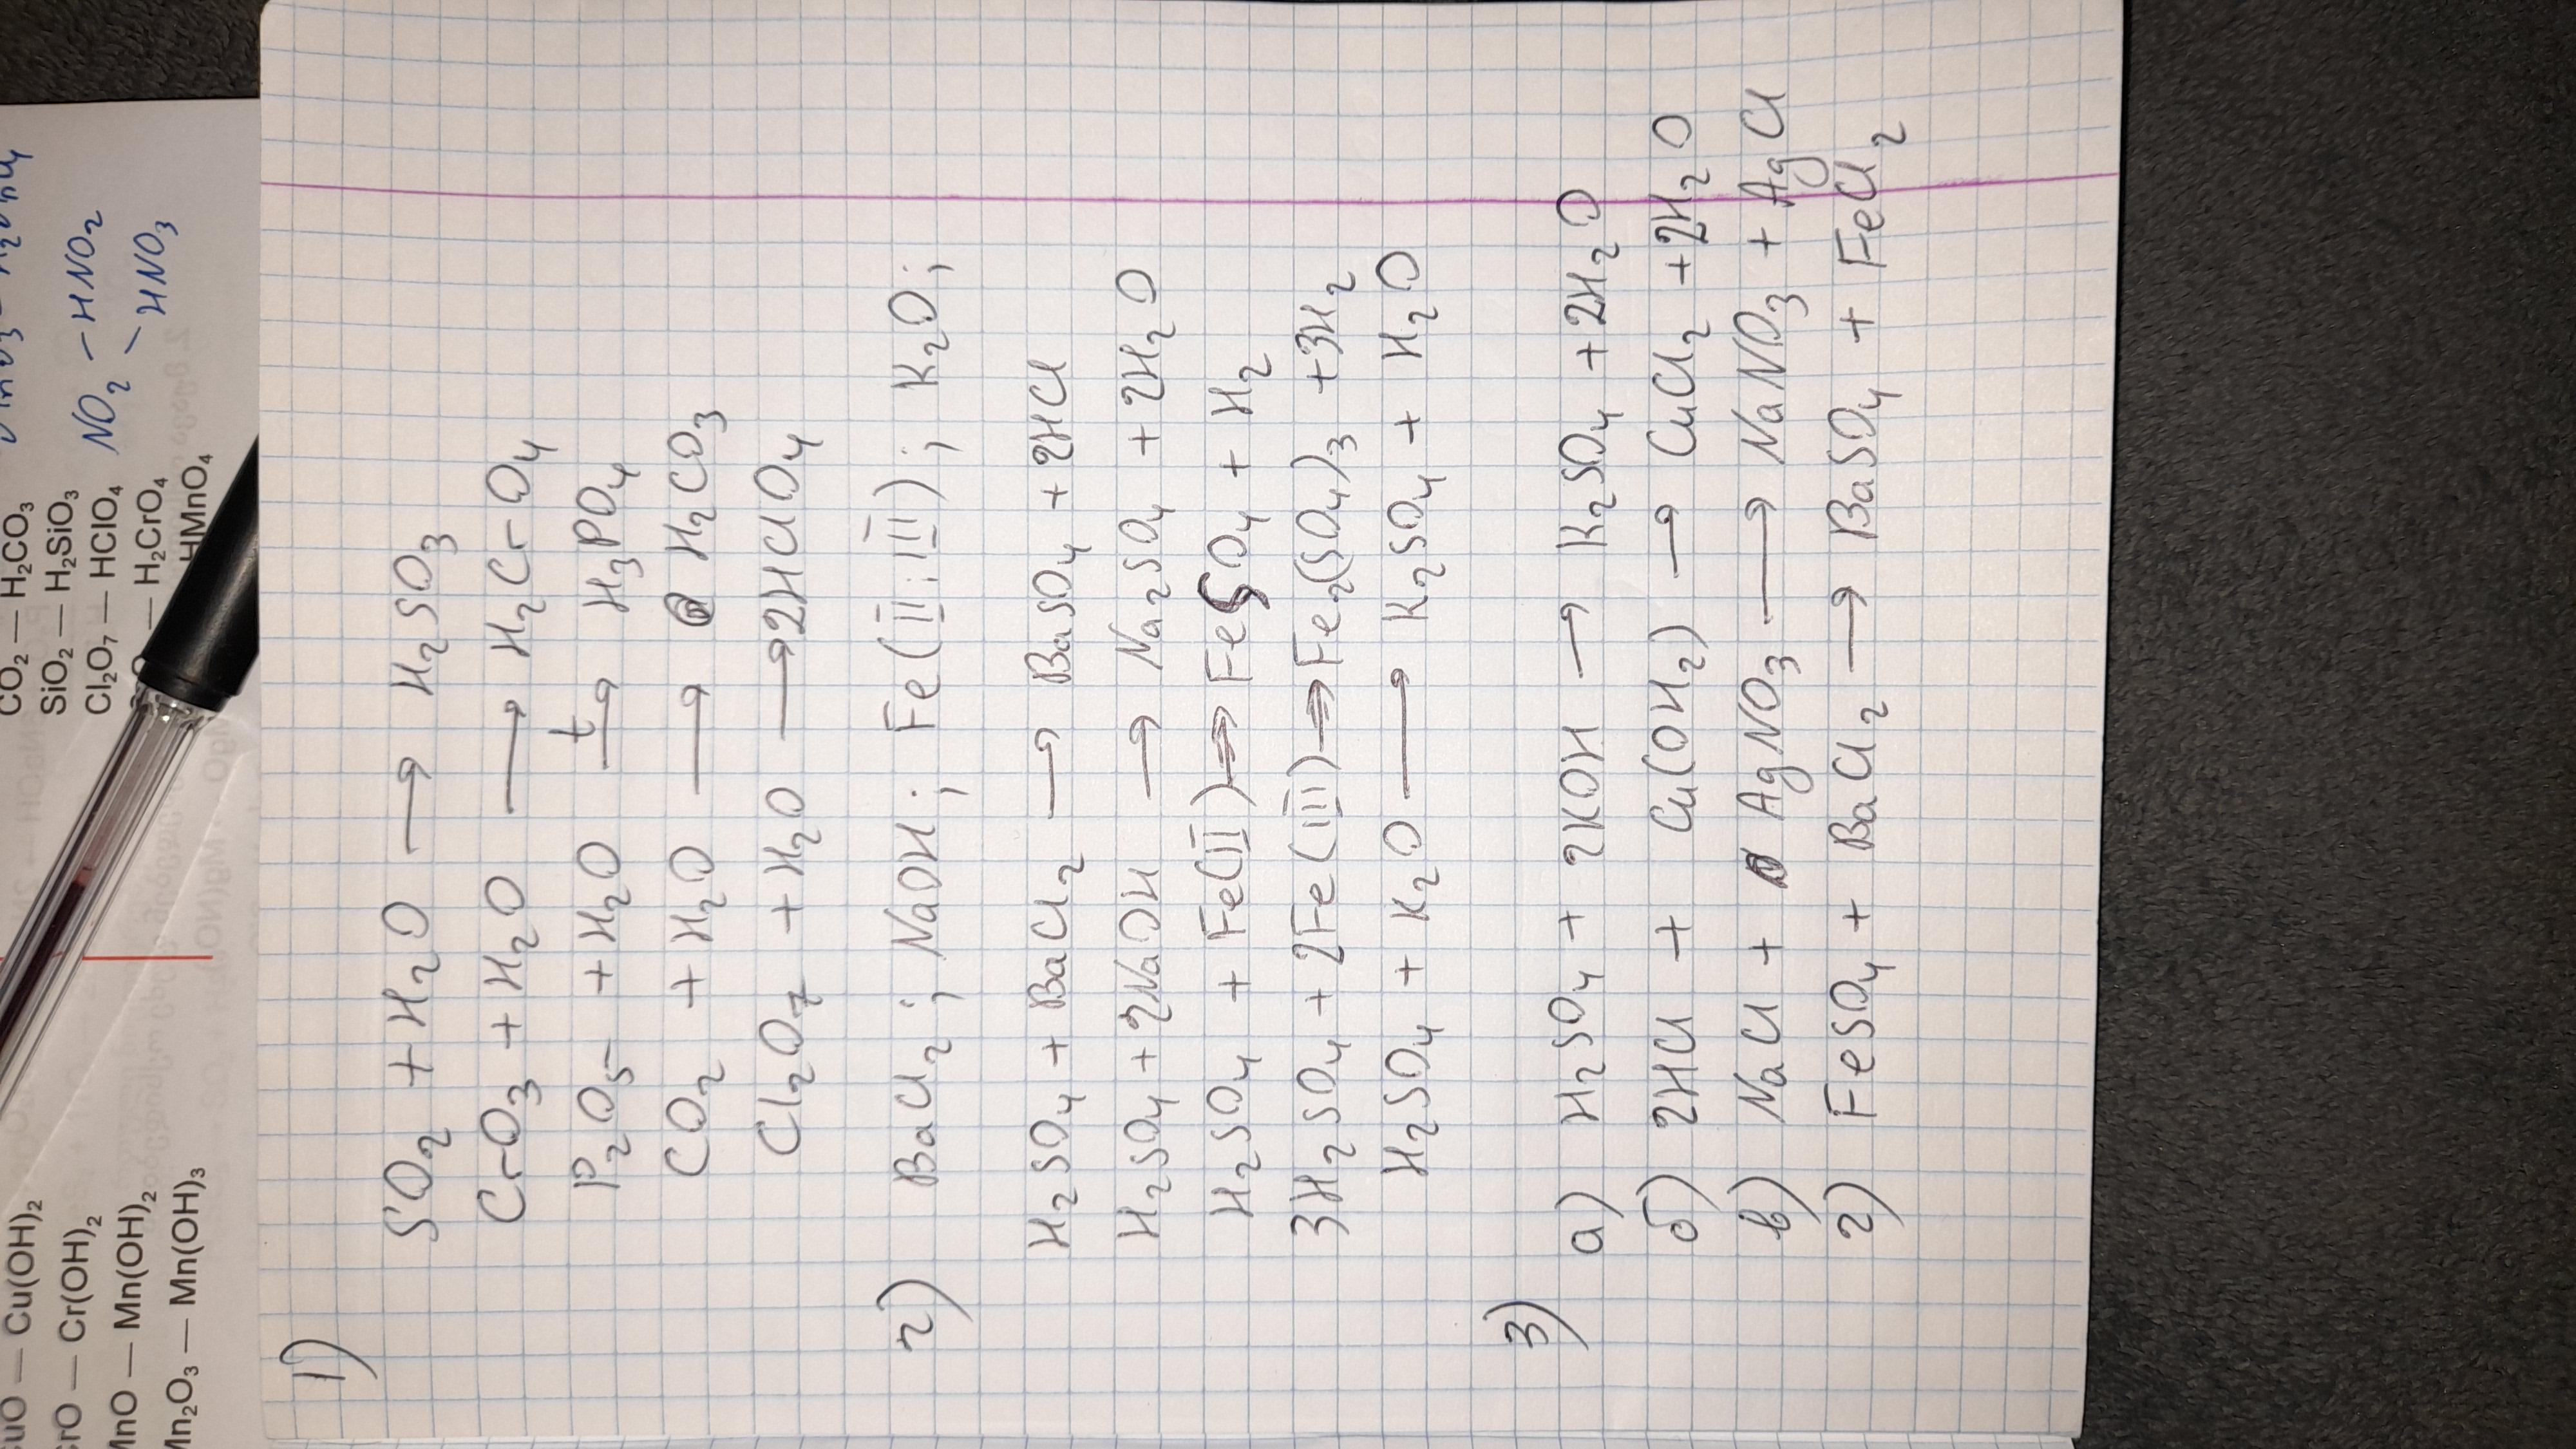 CuO — Cu(OH)₂
CrO — Cr(OH)₂
MnO — Mn(OH)₂
Mn₂O₃ — Mn(OH)₃
CO₂ — H₂CO₃
SiO₂ — H₂SiO₃
Cl₂O₇ — HClO₄
— H₂CrO₄
HMnO₄
NO₂ — HNO₂
— HNO₃
1)
SO₂ + H₂O → H₂SO₃
CrO₃ + H₂O → H₂CrO₄
P₂O₅ + H₂O →ᵗ H₃PO₄
CO₂ + H₂O → H₂CO₃
Cl₂O₇ + H₂O → 2HClO₄
2) BaCl₂; NaOH; Fe(II;III); K₂O;
H₂SO₄ + BaCl₂ → BaSO₄ + 2HCl
H₂SO₄ + 2NaOH → Na₂SO₄ + 2H₂O
H₂SO₄ + Fe(II) → FeSO₄ + H₂
3H₂SO₄ + 2Fe(III) → Fe₂(SO₄)₃ + 3H₂
H₂SO₄ + K₂O → K₂SO₄ + H₂O
3)
а) H₂SO₄ + 2KOH → K₂SO₄ + 2H₂O
б) 2HCl + Cu(OH₂) → CuCl₂ + 2H₂O
в) NaCl + AgNO₃ → NaNO₃ + AgCl
г) FeSO₄ + BaCl₂ → BaSO₄ + FeCl₂